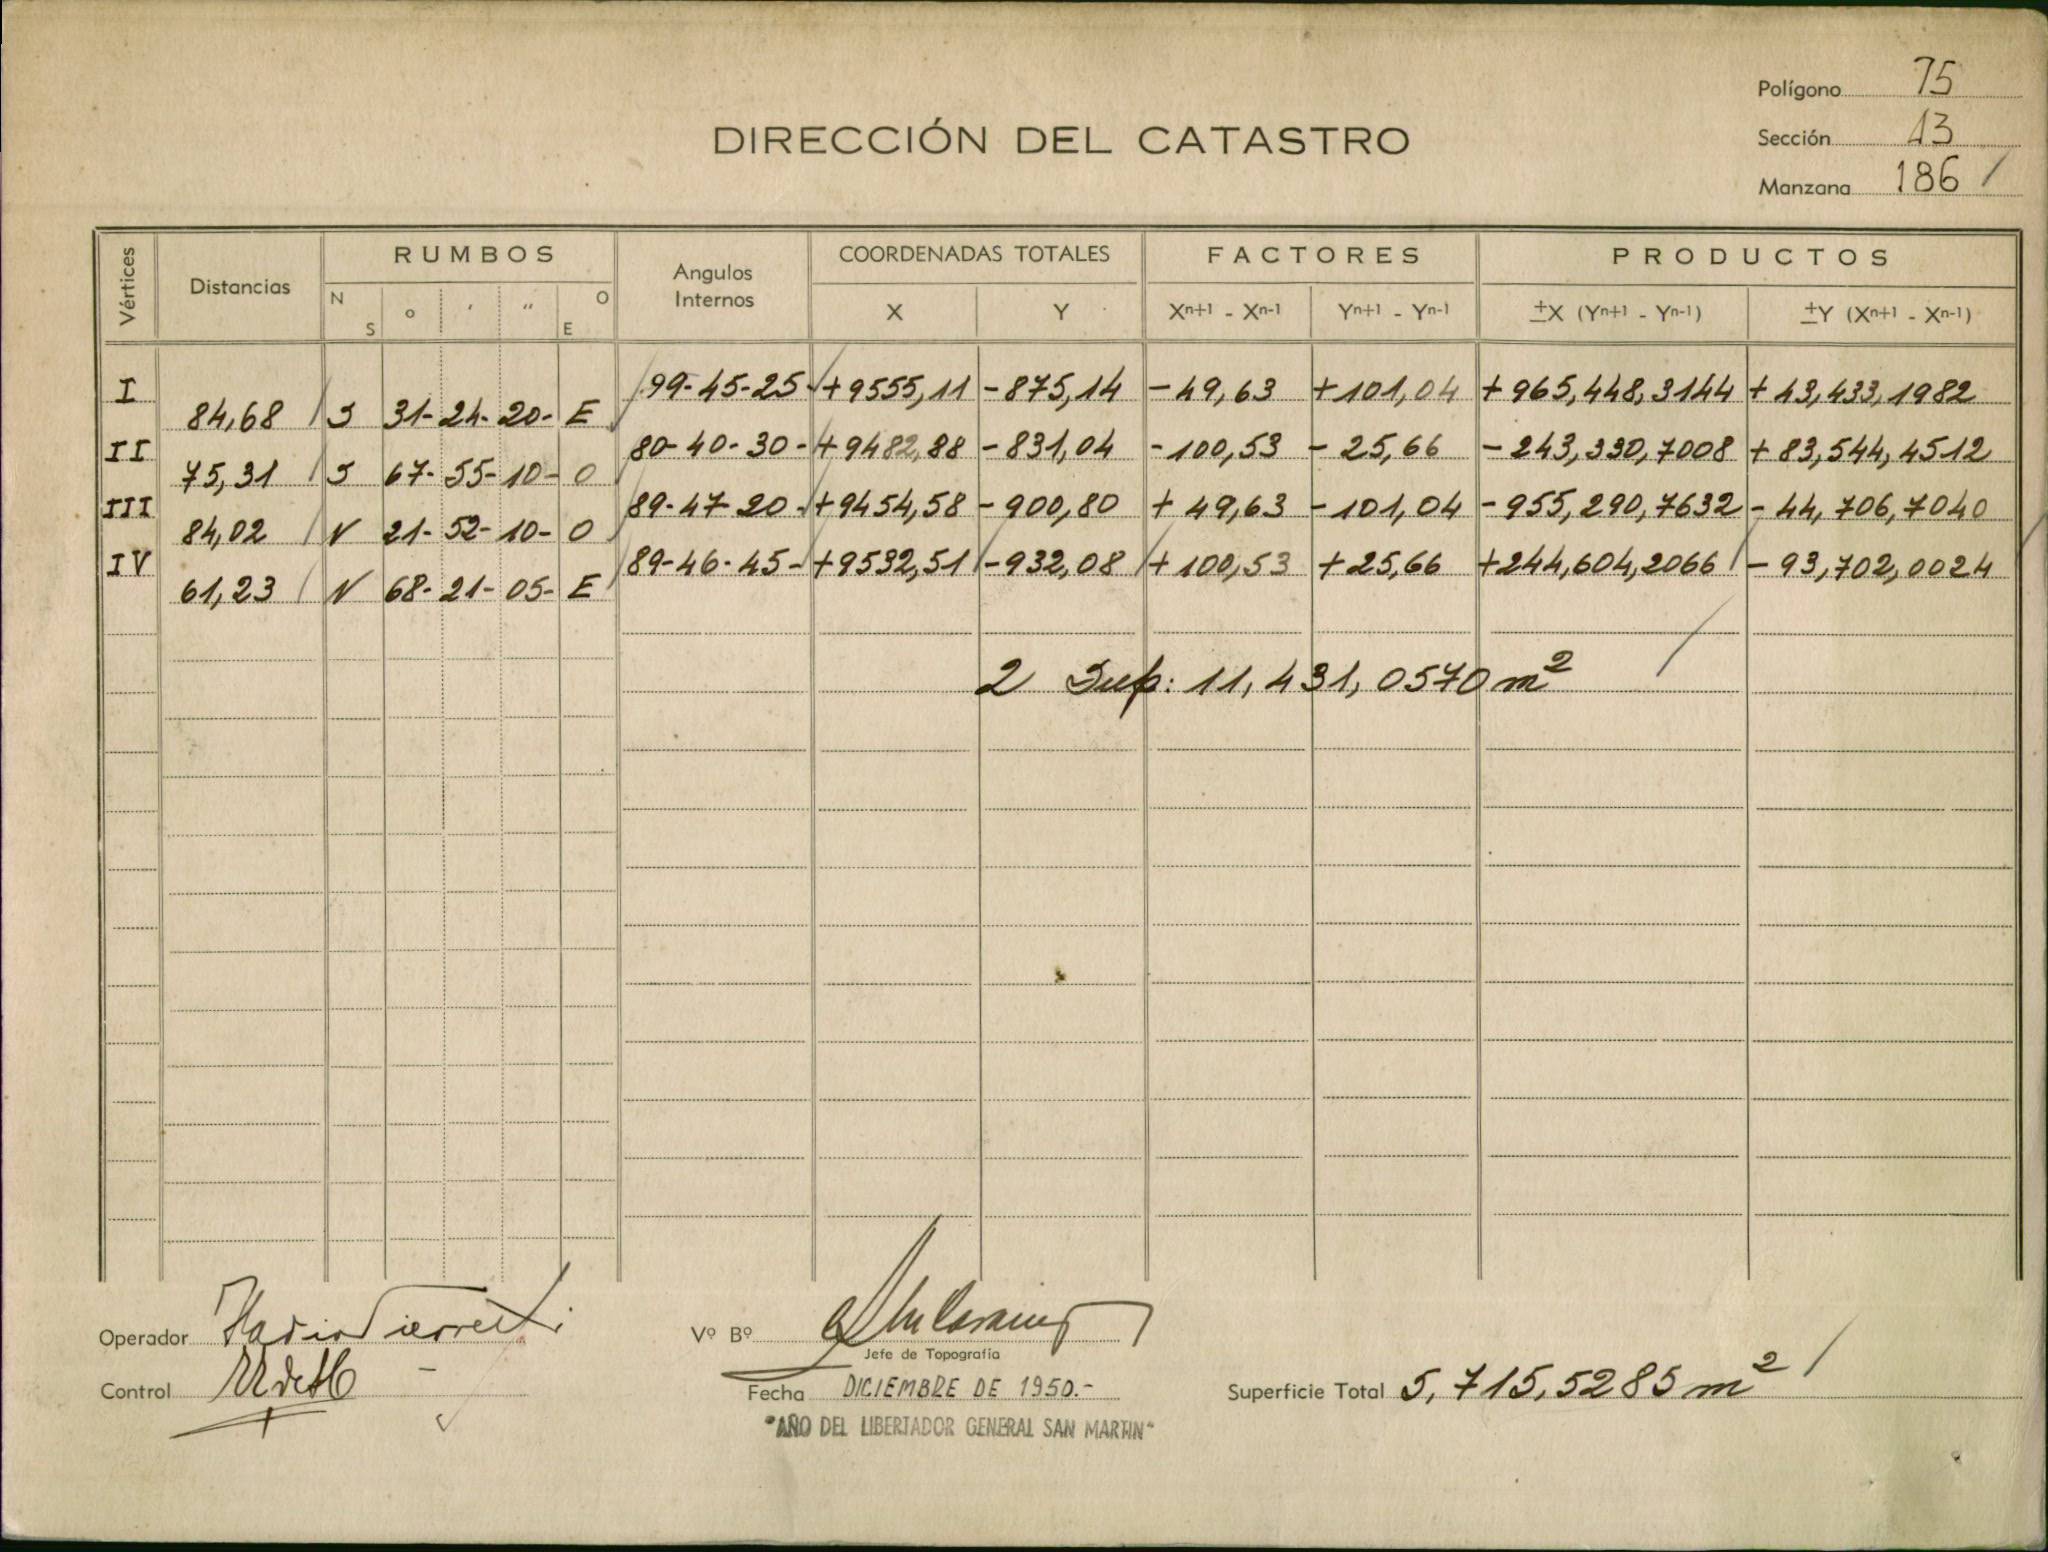 Polígono 75
DIRECCIÓN DEL CATASTRO
Sección 13
Manzana 186 /
Vértices Distancias RUMBOS Angulos Internos COORDENADAS TOTALES FACTORES PRODUCTOS
N S ° ' " O E X Y Xⁿ⁺¹ - Xⁿ⁻¹ Yⁿ⁺¹ - Yⁿ⁻¹ ±X (Yⁿ⁺¹ - Yⁿ⁻¹) ±Y (Xⁿ⁺¹ - Xⁿ⁻¹)
I 99-45-25- +9555,11 -875,14 -49,63 +101,04 +965,448,3144 +43,433,1982
84,68 S 31- 24- 20- E
II 80-40-30- +9482,88 -831,04 -100,53 -25,66 -243,330,7008 +83,544,4512
75,31 S 67- 55- 10- O
III 89-47-20- +9454,58 -900,80 +49,63 -101,04 -955,290,7632 -44,706,7040
84,02 N 21- 52- 10- O
IV 89-46-45- +9532,51 -932,08 +100,53 +25,66 +244,604,2066 -93,702,0024
61,23 N 68- 21- 05- E
2 Sup: 11,431,0570 m²
Operador
Vº Bº
Jefe de Topografía
Control
Fecha DICIEMBRE DE 1950.-
Superficie Total 5,715,5285 m² /
"AÑO DEL LIBERTADOR GENERAL SAN MARTIN"